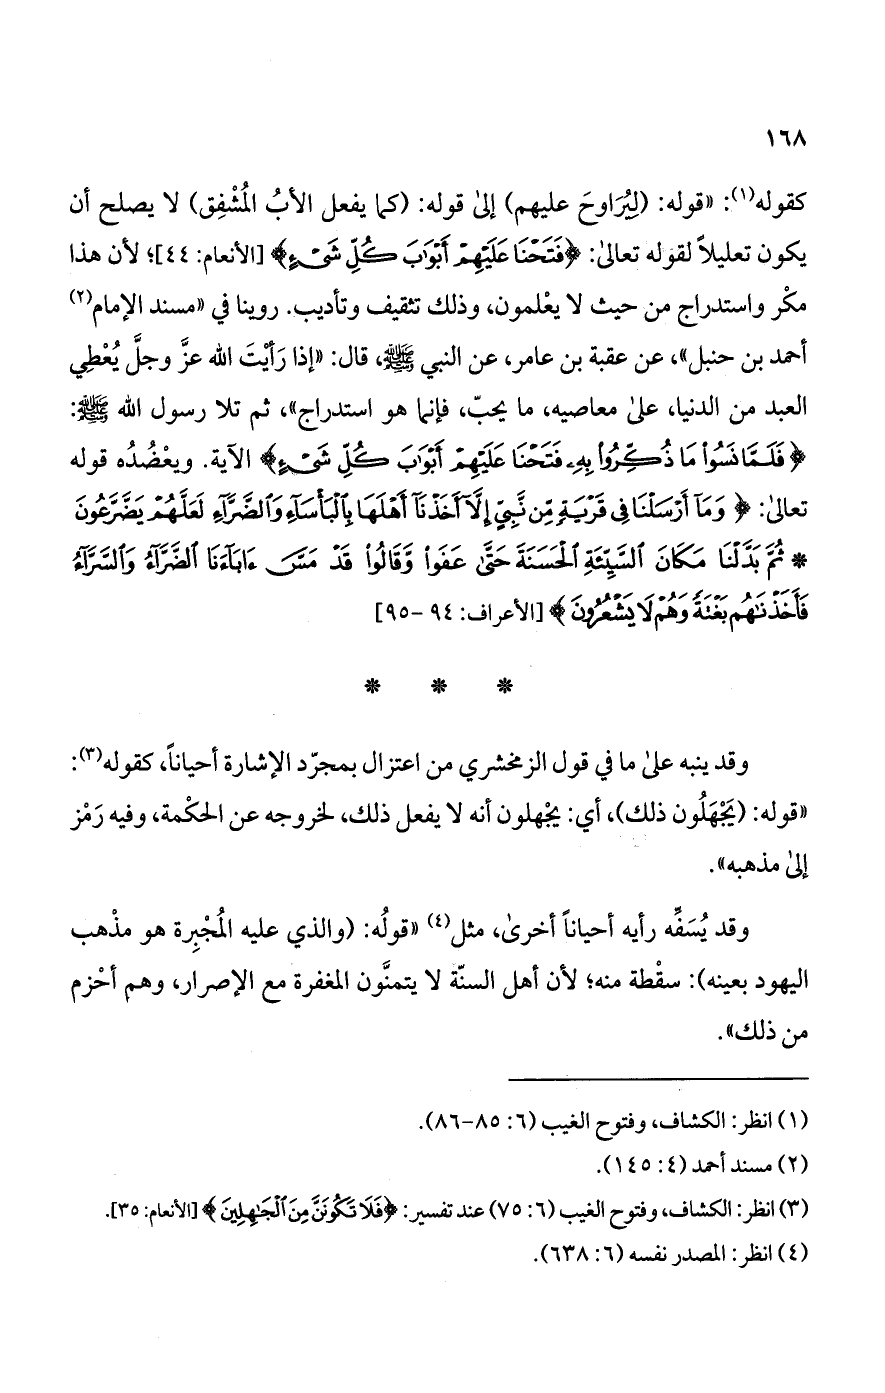 ١٦٨
كقوله(١): «قوله: (لِيُرَاوِحَ عليهم) إلىٰ قوله: (كما يفعل الأبُ المُشْفِق) لا يصلح أن
يكون تعليلاً لقوله تعالىٰ: ﴿فَتَحْنَا عَلَيْهِمْ أَبْوَابَ كُلِّ شَىْءٍ﴾ [الأنعام: ٤٤]؛ لأن هذا
مكْر واستدراج من حيث لا يعْلمون، وذلك تثقيف وتأديب. روينا في «مسند الإمام(٢)
أحمد بن حنبل»، عن عقبة بن عامر، عن النبي ﷺ، قال: «إذا رَأيْتَ الله عزَّ وجلَّ يُعْطِي
العبد من الدنيا، علىٰ معاصيه، ما يحبّ، فإنما هو استدراج»، ثم تلا رسول الله ﷺ:
﴿فَلَمَّا نَسُوا۟ مَا ذُكِّرُوا۟ بِهِۦ فَتَحْنَا عَلَيْهِمْ أَبْوَابَ كُلِّ شَىْءٍ﴾ الآية. ويعْضُدُه قوله
تعالىٰ: ﴿وَمَآ أَرْسَلْنَا فِى قَرْيَةٍ مِّن نَّبِىٍّ إِلَّآ أَخَذْنَآ أَهْلَهَا بِٱلْبَأْسَآءِ وَٱلضَّرَّآءِ لَعَلَّهُمْ يَضَّرَّعُونَ
* ثُمَّ بَدَّلْنَا مَكَانَ ٱلسَّيِّئَةِ ٱلْحَسَنَةَ حَتَّىٰ عَفَوا۟ وَّقَالُوا۟ قَدْ مَسَّ ءَابَآءَنَا ٱلضَّرَّآءُ وَٱلسَّرَّآءُ
فَأَخَذْنَٰهُم بَغْتَةً وَهُمْ لَا يَشْعُرُونَ﴾ [الأعراف: ٩٤-٩٥]
* * *
وقد ينبه علىٰ ما في قول الزمخشري من اعتزال بمجرّد الإشارة أحياناً، كقوله(٣):
«قوله: (يَجْهَلُون ذلك)، أي: يجْهلون أنه لا يفعل ذلك، لخروجه عن الحكْمة، وفيه رَمْز
إلىٰ مذهبه».
وقد يُسَفِّه رأيه أحياناً أخرىٰ، مثل(٤) «قولُه: (والذي عليه المُجْبِرة هو مذْهب
اليهود بعينه): سقْطة منه؛ لأن أهل السنّة لا يتمنَّون المغفرة مع الإصرار، وهم أحْزم
من ذلك».
(١) انظر: الكشاف، وفتوح الغيب (٦: ٨٥-٨٦).
(٢) مسند أحمد (٤: ١٤٥).
(٣) انظر: الكشاف، وفتوح الغيب (٦: ٧٥) عند تفسير: ﴿فَلَا تَكُونَنَّ مِنَ ٱلْجَٰهِلِينَ﴾ [الأنعام: ٣٥].
(٤) انظر: المصدر نفسه (٦: ٦٣٨).